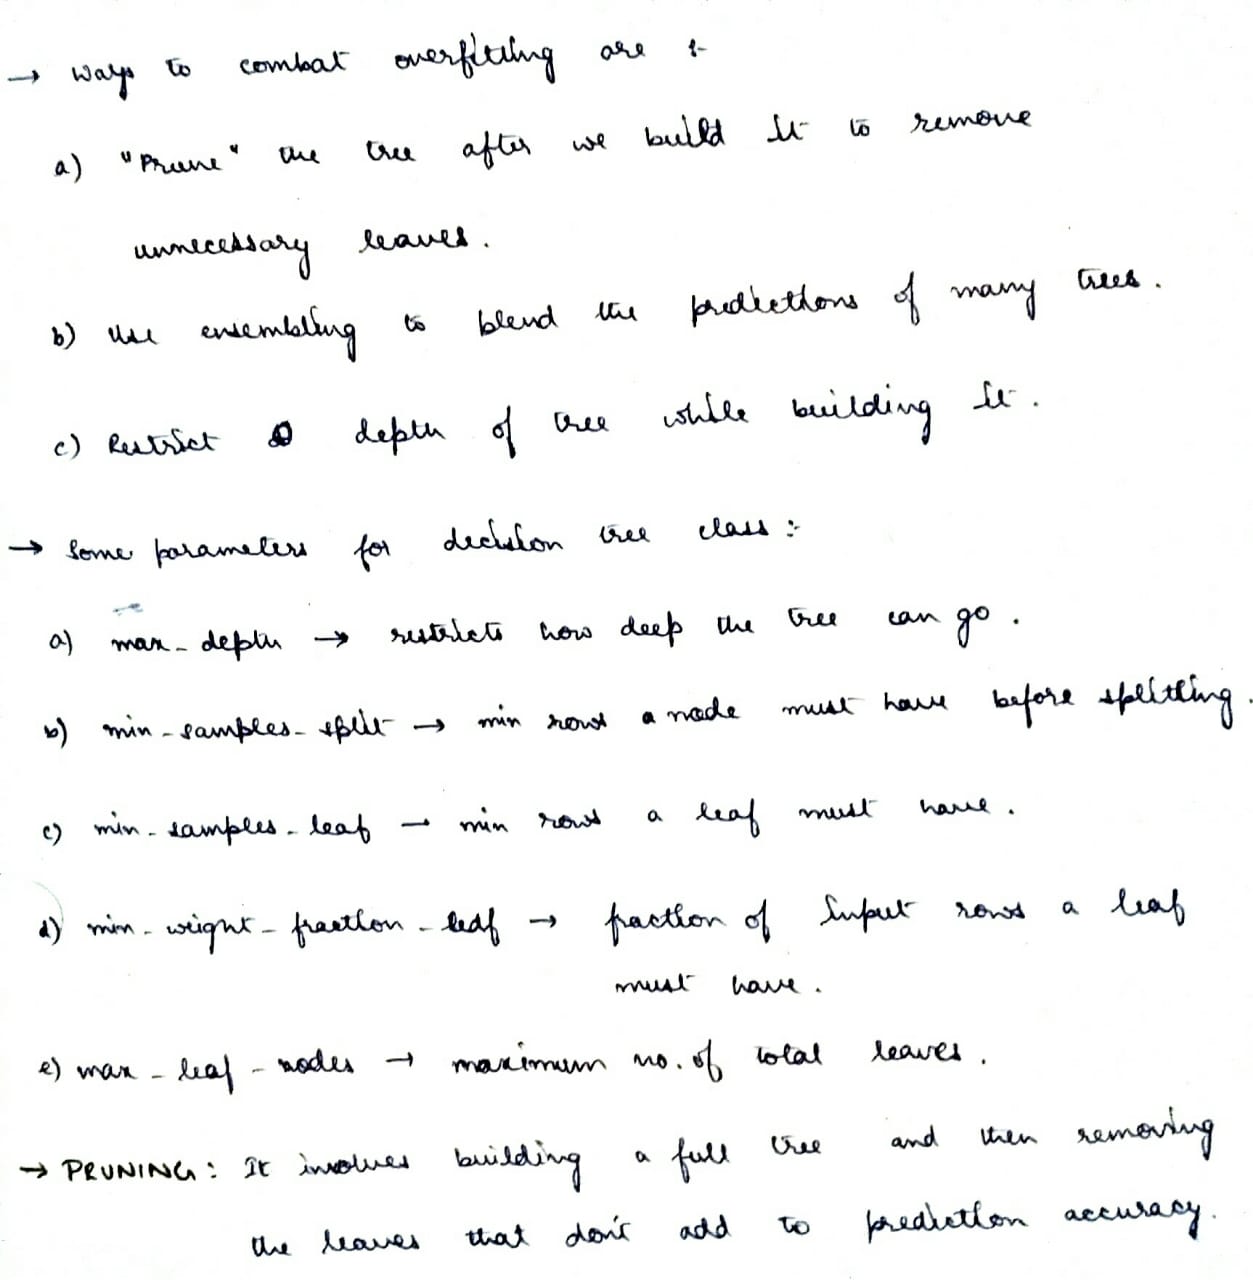 → ways to combat overfitting are :-
a) "Prune" the tree after we build it to remove
unnecessary leaves.
b) Use ensembling to blend the predictions of many trees.
c) Restrict depth of tree while building it.
→ Some parameters for decision tree class :-
a) max_depth → restricts how deep the tree can go.
b) min_samples_split → min rows a node must have before splitting.
c) min_samples_leaf → min rows a leaf must have.
d) min_weight_fraction_leaf → fraction of input rows a leaf
must have.
e) max_leaf_nodes → maximum no. of total leaves.
→ PRUNING : It involves building a full tree and then removing
the leaves that don't add to prediction accuracy.